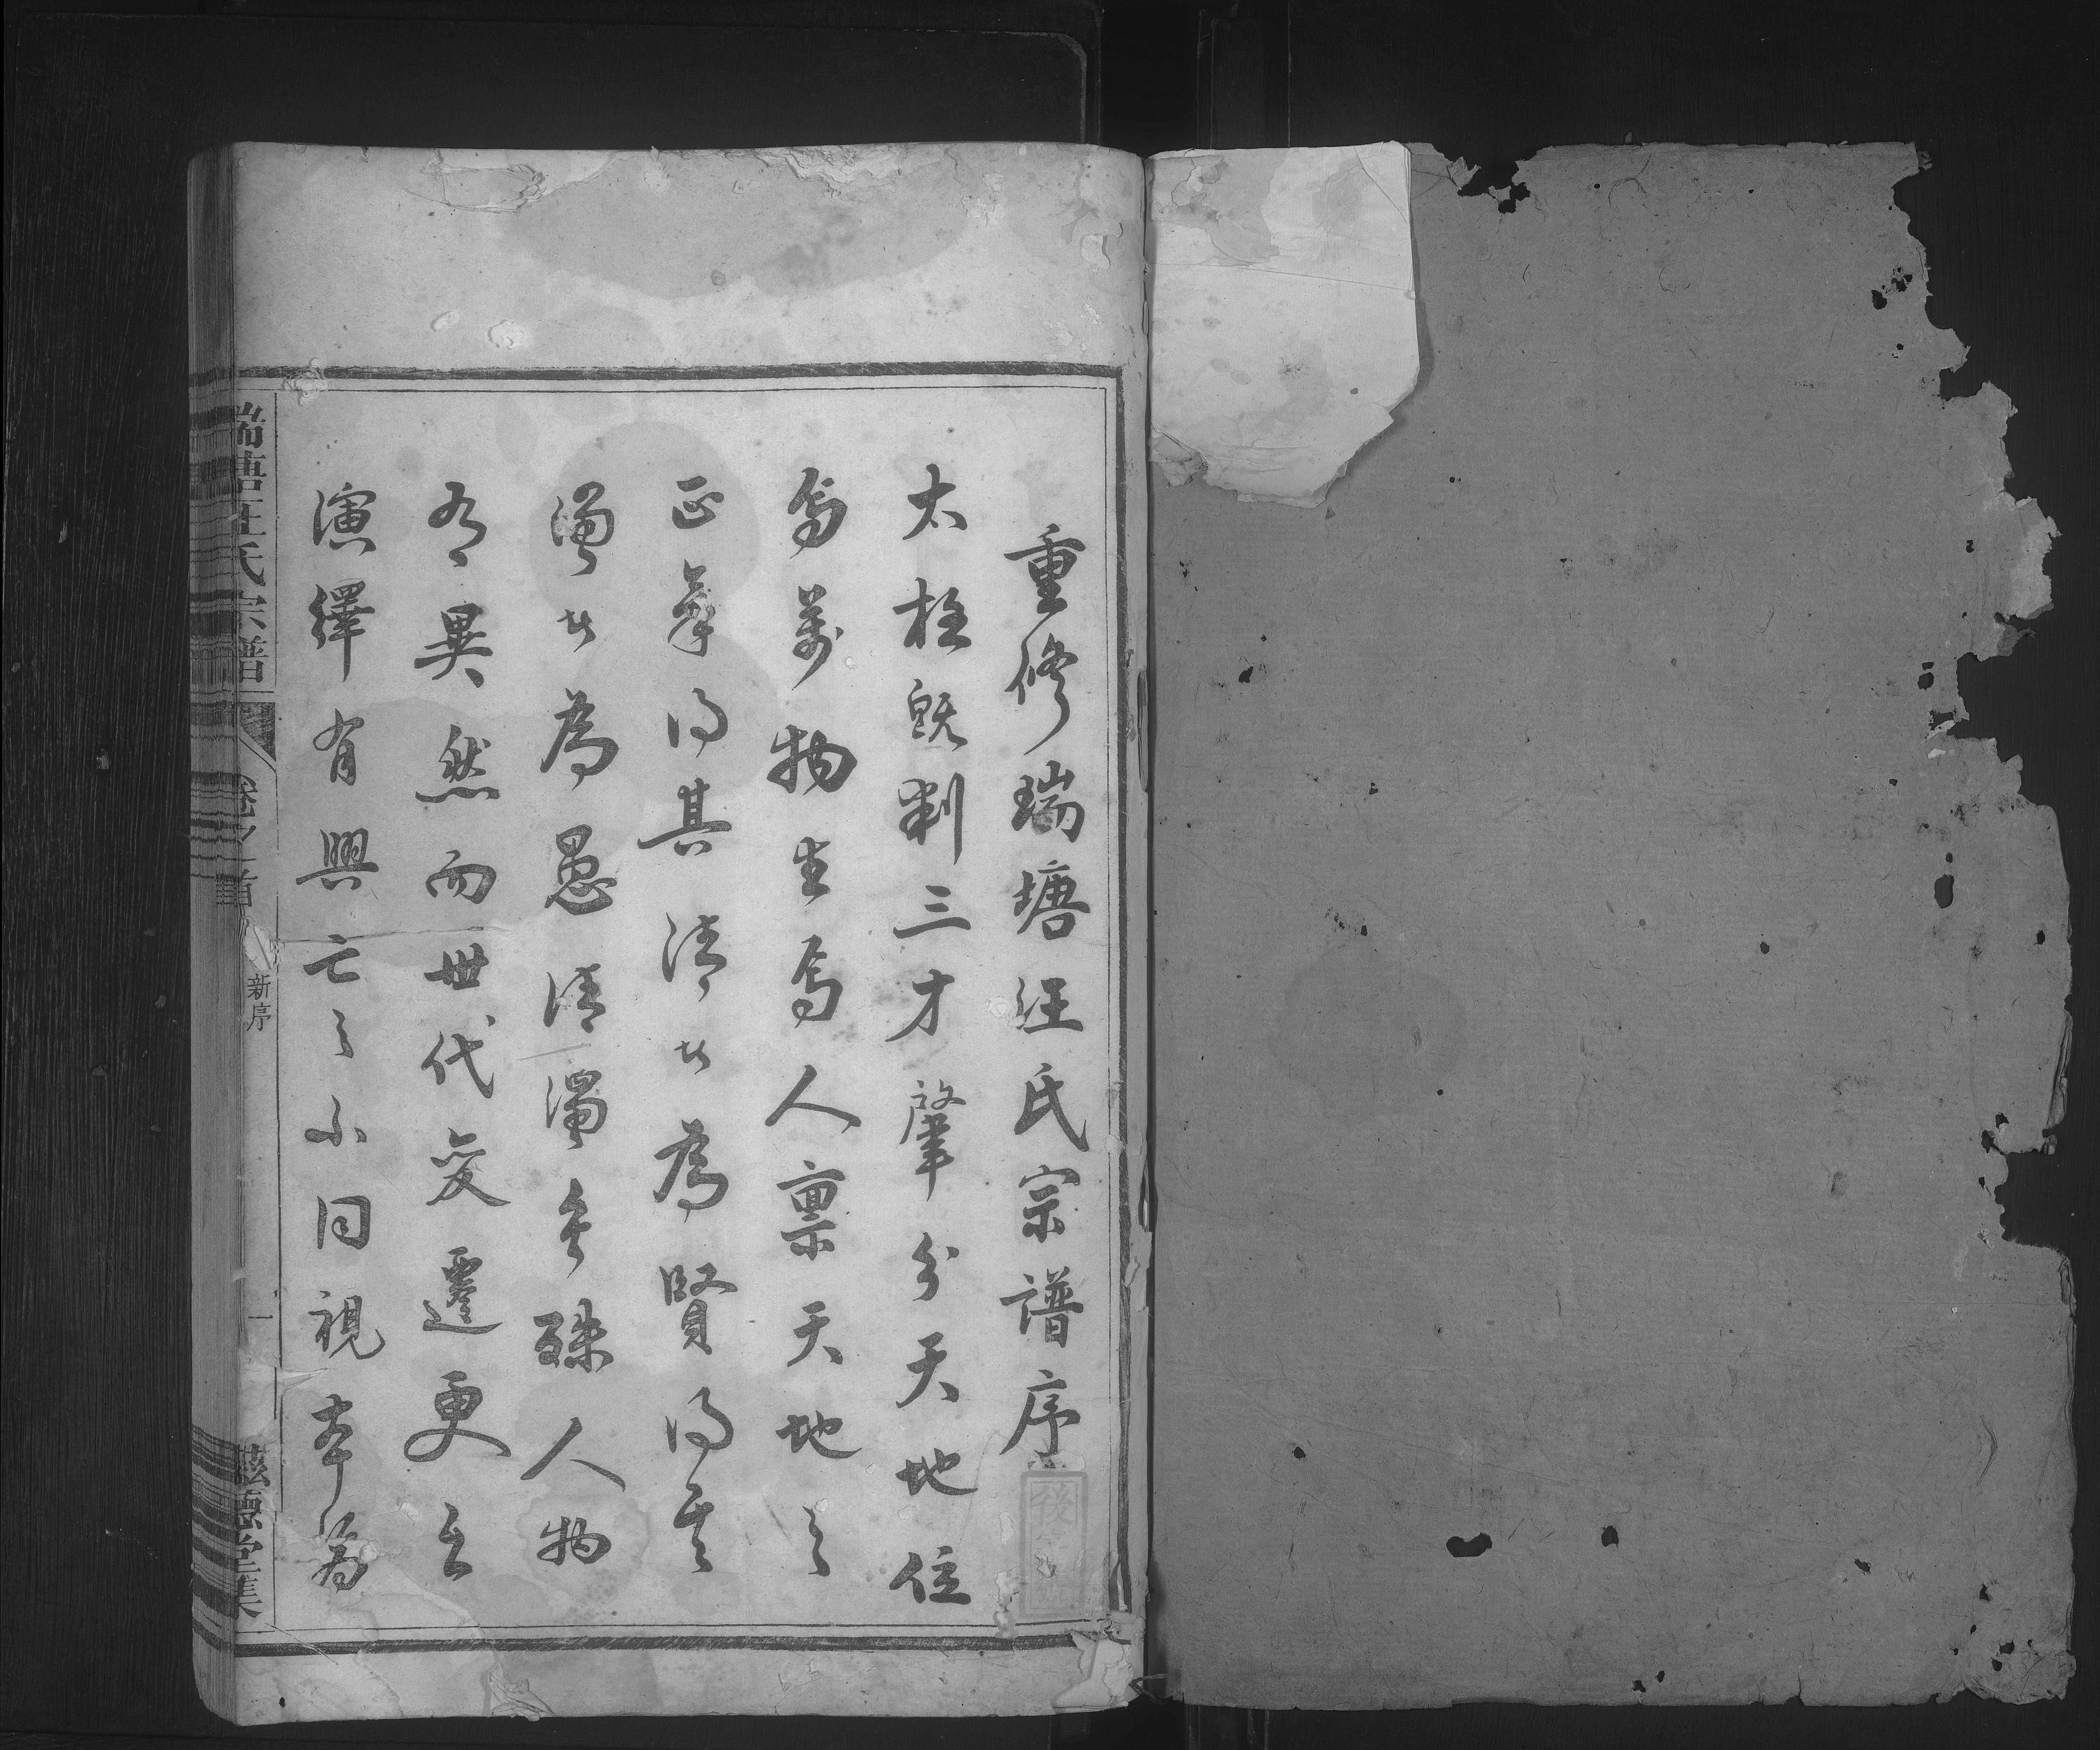 重修瑞塘汪氏宗譜序
太極既判三才肇分天地位
焉萬物生焉人禀天地之
正氣得其清者為賢得其
濁者為愚清濁殊人物
異然而世代变遷更
演繹有興亡之不同視本為
瑞塘汪氏宗譜
卷之首
新序
一
德堂集